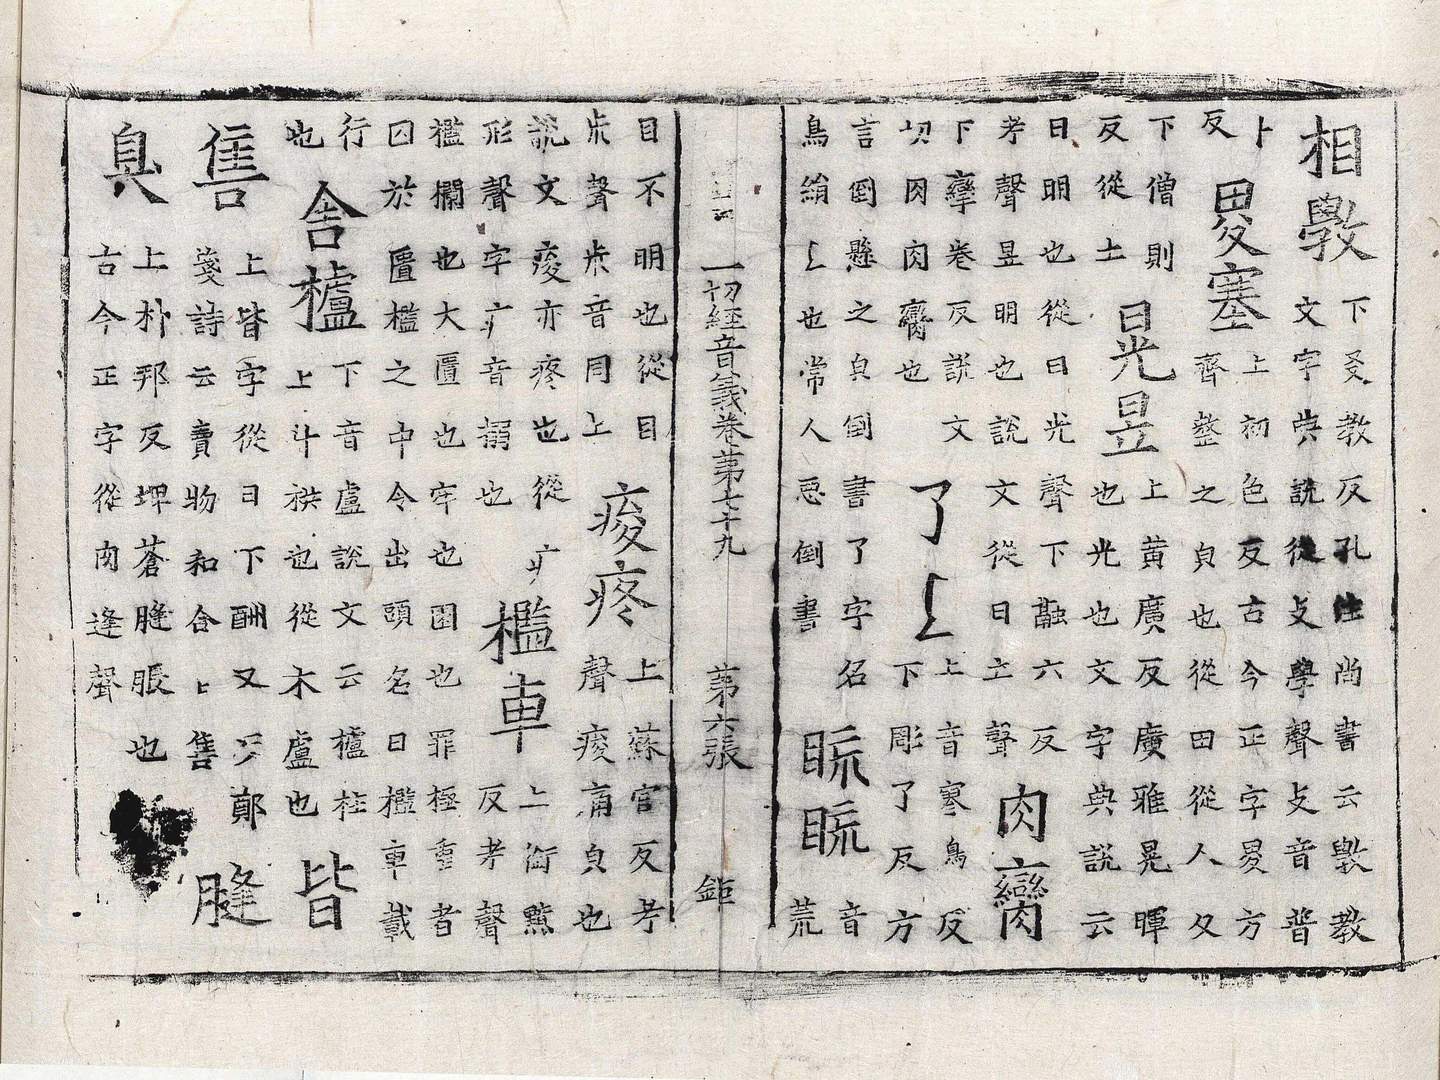 相斆
下爻教反孔注尚書云斆教
文字典說從攴學聲攴音普
卜
反
畟塞
上初色反古今正字畟方
齊整之皃也從田從人夂
下僧則
反從土
晃昱
上黃廣反廣雅晃暉
也光也文字典說云
日明也從日光聲下融六反
考聲昱明也說文從日立聲
肉臠
下臠卷反說文
切肉肉臠也
了𠄌
上音寒鳥反
下彫了反方
言倒懸之皃倒書了字名
鳥絹𠄌也常人惡倒書
䀮䀮
音
荒
一切經音義卷第七十九 第六張 鉅
目不明也從目
巟聲巟音同上
痠疼
上蘇官反考
聲痠痛皃也
說文痠亦疼也從疒
形聲字疒音搦也
檻車
上銜黤
反考聲
檻欄也大匱也牢也圂也罪極重者
囚於匱檻之中令出頭名曰檻車載
行
也
舍櫨
下音盧說文云櫨柱
上斗栱也從木盧也
皆
售
上皆字從日下酬又反鄭
箋詩云賣物和合上售
膖
臭
上朴邦反埤蒼膖脹也
古今正字從肉逢聲